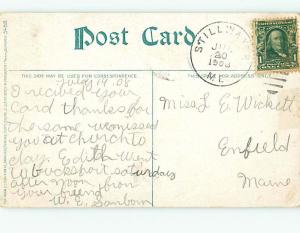 Post Card
THIS SIDE MAY BE USED FOR CORRESPONDENCE.
THIS SIDE IS FOR THE ADDRESS.
STILLWATER
JUL
20
1908
ME.
1
July 19. 08
I recived your
card thanks for
the same we missed
you at church to
day. Edith Went
to Bucksport saturday
after noon from
your friend
W. E. Sanborn
Miss L E Wickett
Enfield
Maine